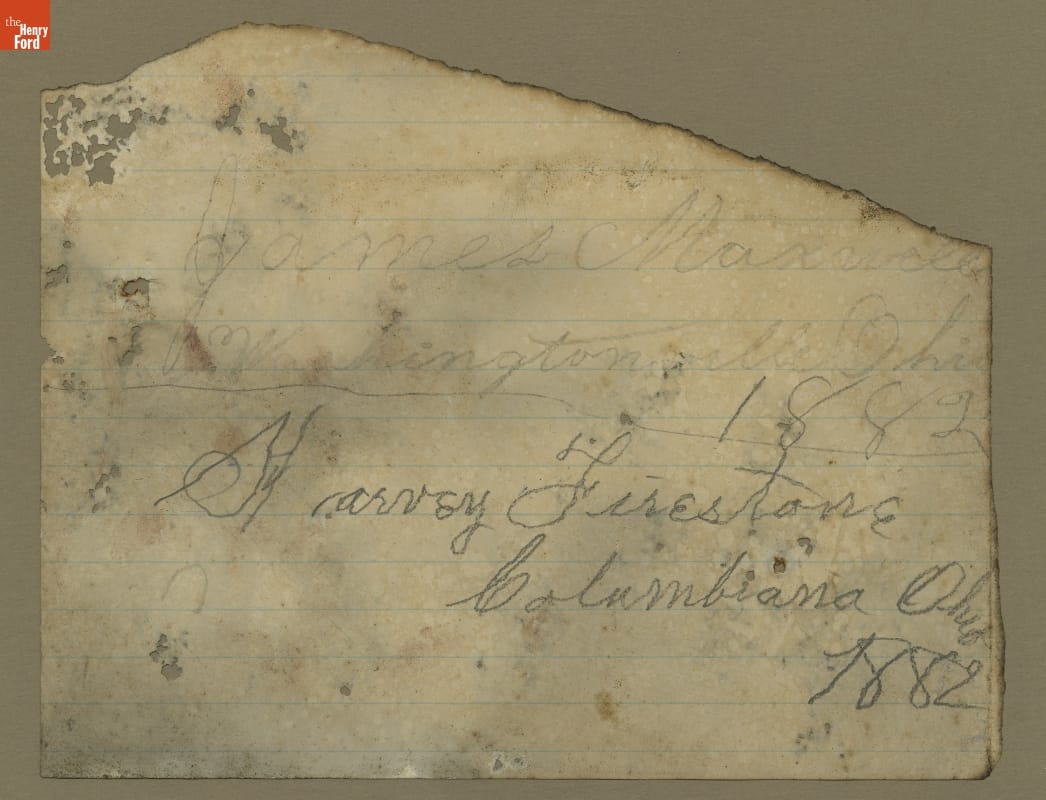 the
Henry
Ford
James Maxwell
Washingtonville Ohio
1882
Harvey Firestone
Columbiana Ohio
1882